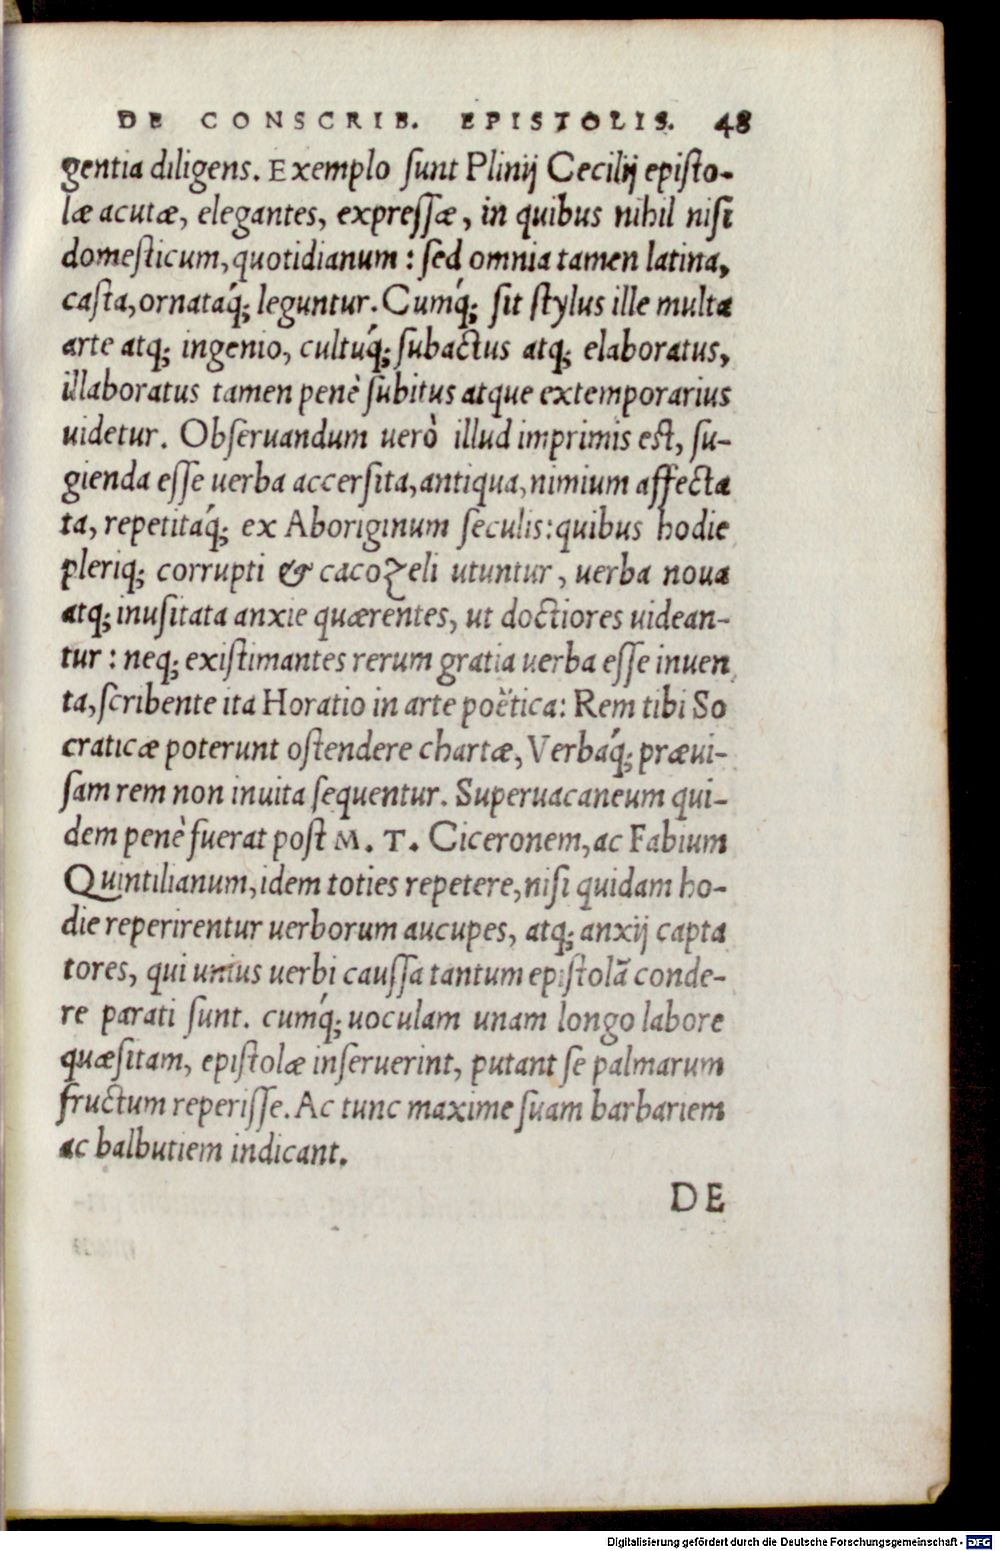 DE CONSCRIB. EPISTOLIS. 48
gentia diligens. Exemplo ſunt Plinij Cecilij epiſto-
læ acutæ, elegantes, expreſſæ, in quibus nihil niſi
domeſticum, quotidianum : ſed omnia tamen latina,
caſta, ornataq́; leguntur. Cumq́; ſit ſtylus ille multa
arte atq; ingenio, cultuq́; ſubactus atq; elaboratus,
illaboratus tamen penè ſubitus atque extemporarius
uidetur. Obſeruandum uerò illud imprimis eſt, fu-
gienda eſſe uerba accerſita, antiqua, nimium affecta
ta, repetitaq́; ex Aboriginum ſeculis: quibus hodie
pleriq; corrupti & cacozeli utuntur, uerba noua
atq; inuſitata anxie quærentes, ut doctiores uidean-
tur : neq; exiſtimantes rerum gratia uerba eſſe inuen
ta, ſcribente ita Horatio in arte poëtica: Rem tibi So
craticæ poterunt oſtendere chartæ, Verbaq́; præui-
ſam rem non inuita ſequentur. Superuacaneum qui-
dem penè fuerat poſt M. T. Ciceronem, ac Fabium
Quintilianum, idem toties repetere, niſi quidam ho-
die reperirentur uerborum aucupes, atq; anxij capta
tores, qui unius uerbi cauſſa tantum epiſtolã conde-
re parati ſunt. cumq́; uoculam unam longo labore
quæſitam, epiſtolæ inſeruerint, putant ſe palmarum
fructum reperiſſe. Ac tunc maxime ſuam barbariem
ac balbutiem indicant.
DE
Digitalisierung gefördert durch die Deutsche Forschungsgemeinschaft - DFG